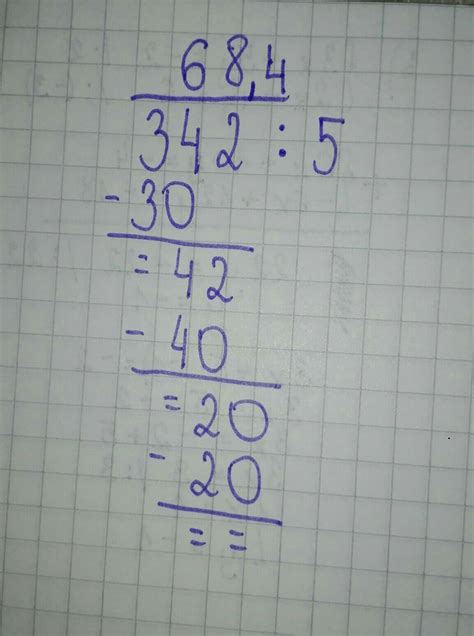 68,4
342 : 5
-30
= 42
- 40
= 20
- 20
= =